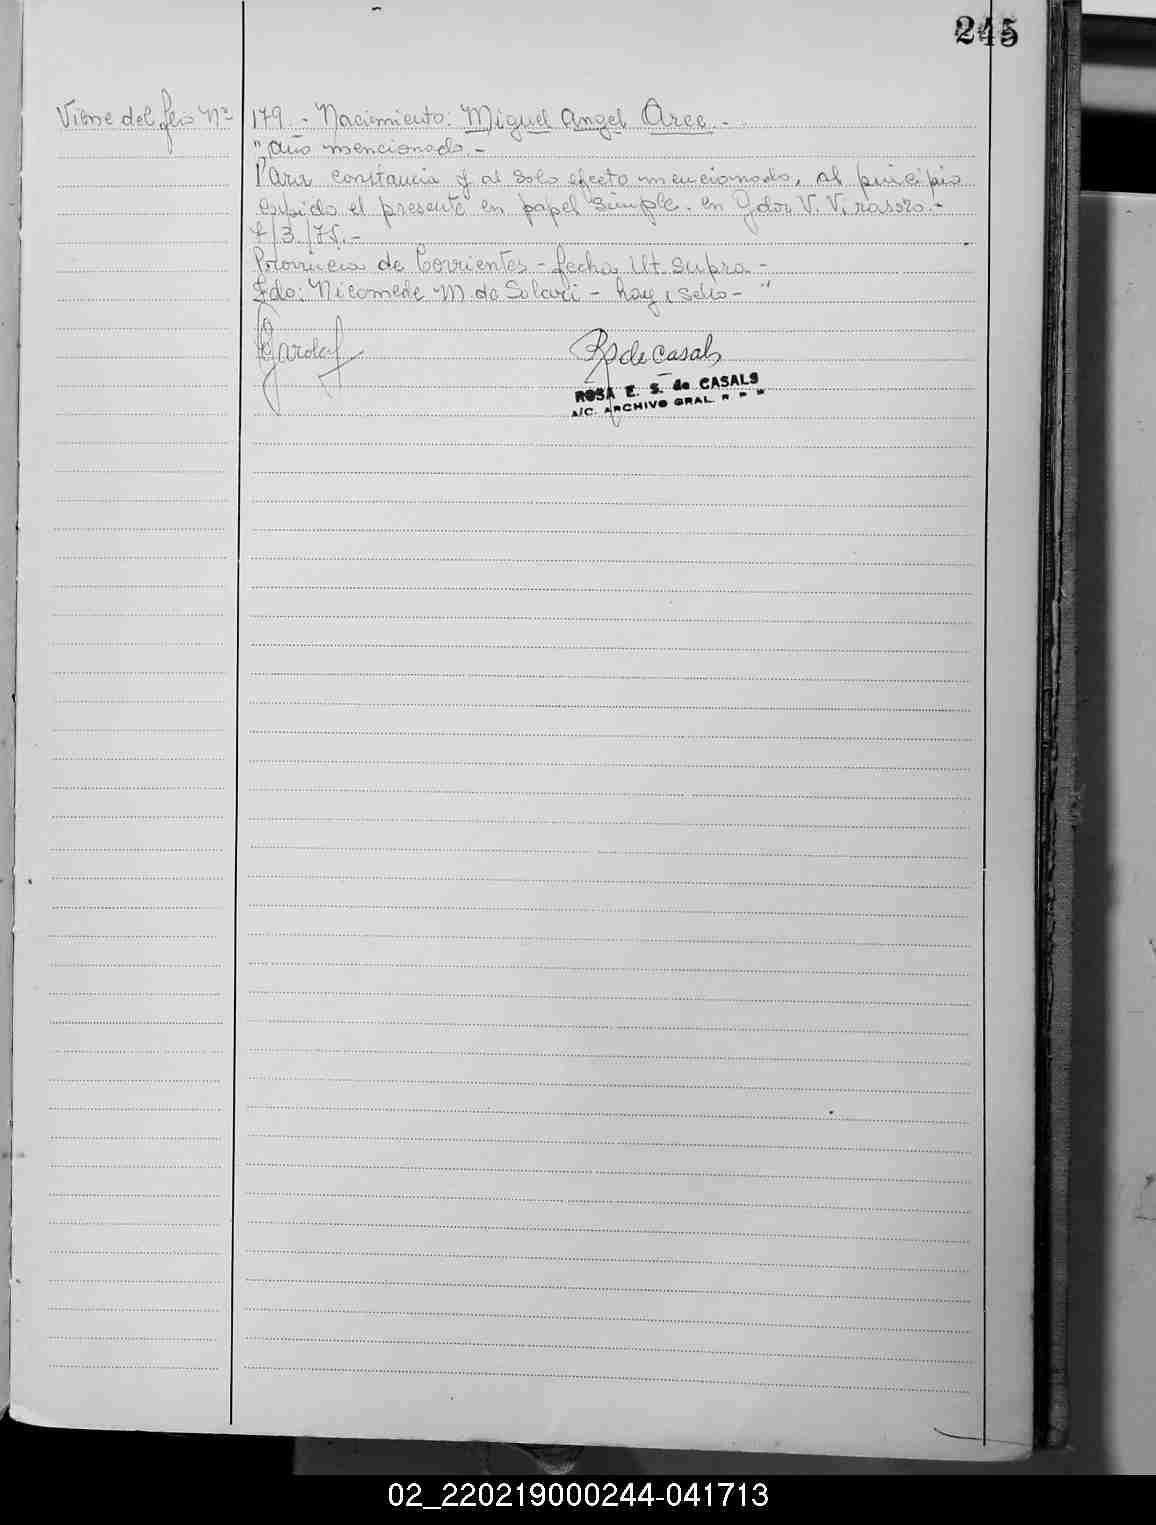 245
Viene del folio Nº 179.- Nacimiento: Miguel Angel Arce.-
"año mencionado.-
Para constancia y al solo efecto mencionado, al principio
expido el presente en papel simple. en Gdor V. Virasoro.-
/3/75.-
Provincia de Corrientes - fecha Ut. Supra -
Fdo: Nicomede M. de Solari - hay 1 sello - "
R de Casals
ROSA E. S. de CASALS
A/C. ARCHIVO GRAL. R P
02_220219000244-041713